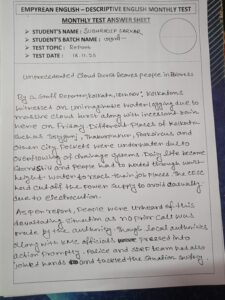 EMPYREAN ENGLISH – DESCRIPTIVE ENGLISH MONTHLY TEST
MONTHLY TEST ANSWER SHEET
➤ STUDENT'S NAME : SUBHRODEEP SARKAR
➤ STUDENT'S BATCH NAME :
➤ TEST TOPIC : Report
➤ TEST DATE : 18.11.25
Unprecedented Cloud Burst leaves people in
By a Staff Reporter, Kolkata, : Kolkatans
witnessed an unimaginable water logging due to
massive cloud burst along with incessant rain
here on Friday. Different places of Kolkata
such as Jadavpur, Thakurpukur, and
other city pockets were underwater due to
overflowing of drainage systems. Daily life became
standstill and people had to waded through waist
height water to reach their job places. The CESC
had cut off the power supply to avoid casualty
due to electrocution.
As per report, people were unheard of this
devastating situation as no prior call was
made by the authority. Though local authorities
along with KMC officials pressed into
action promptly. Police and SDRF team had also
joined hands to succeed the situation swiftly.